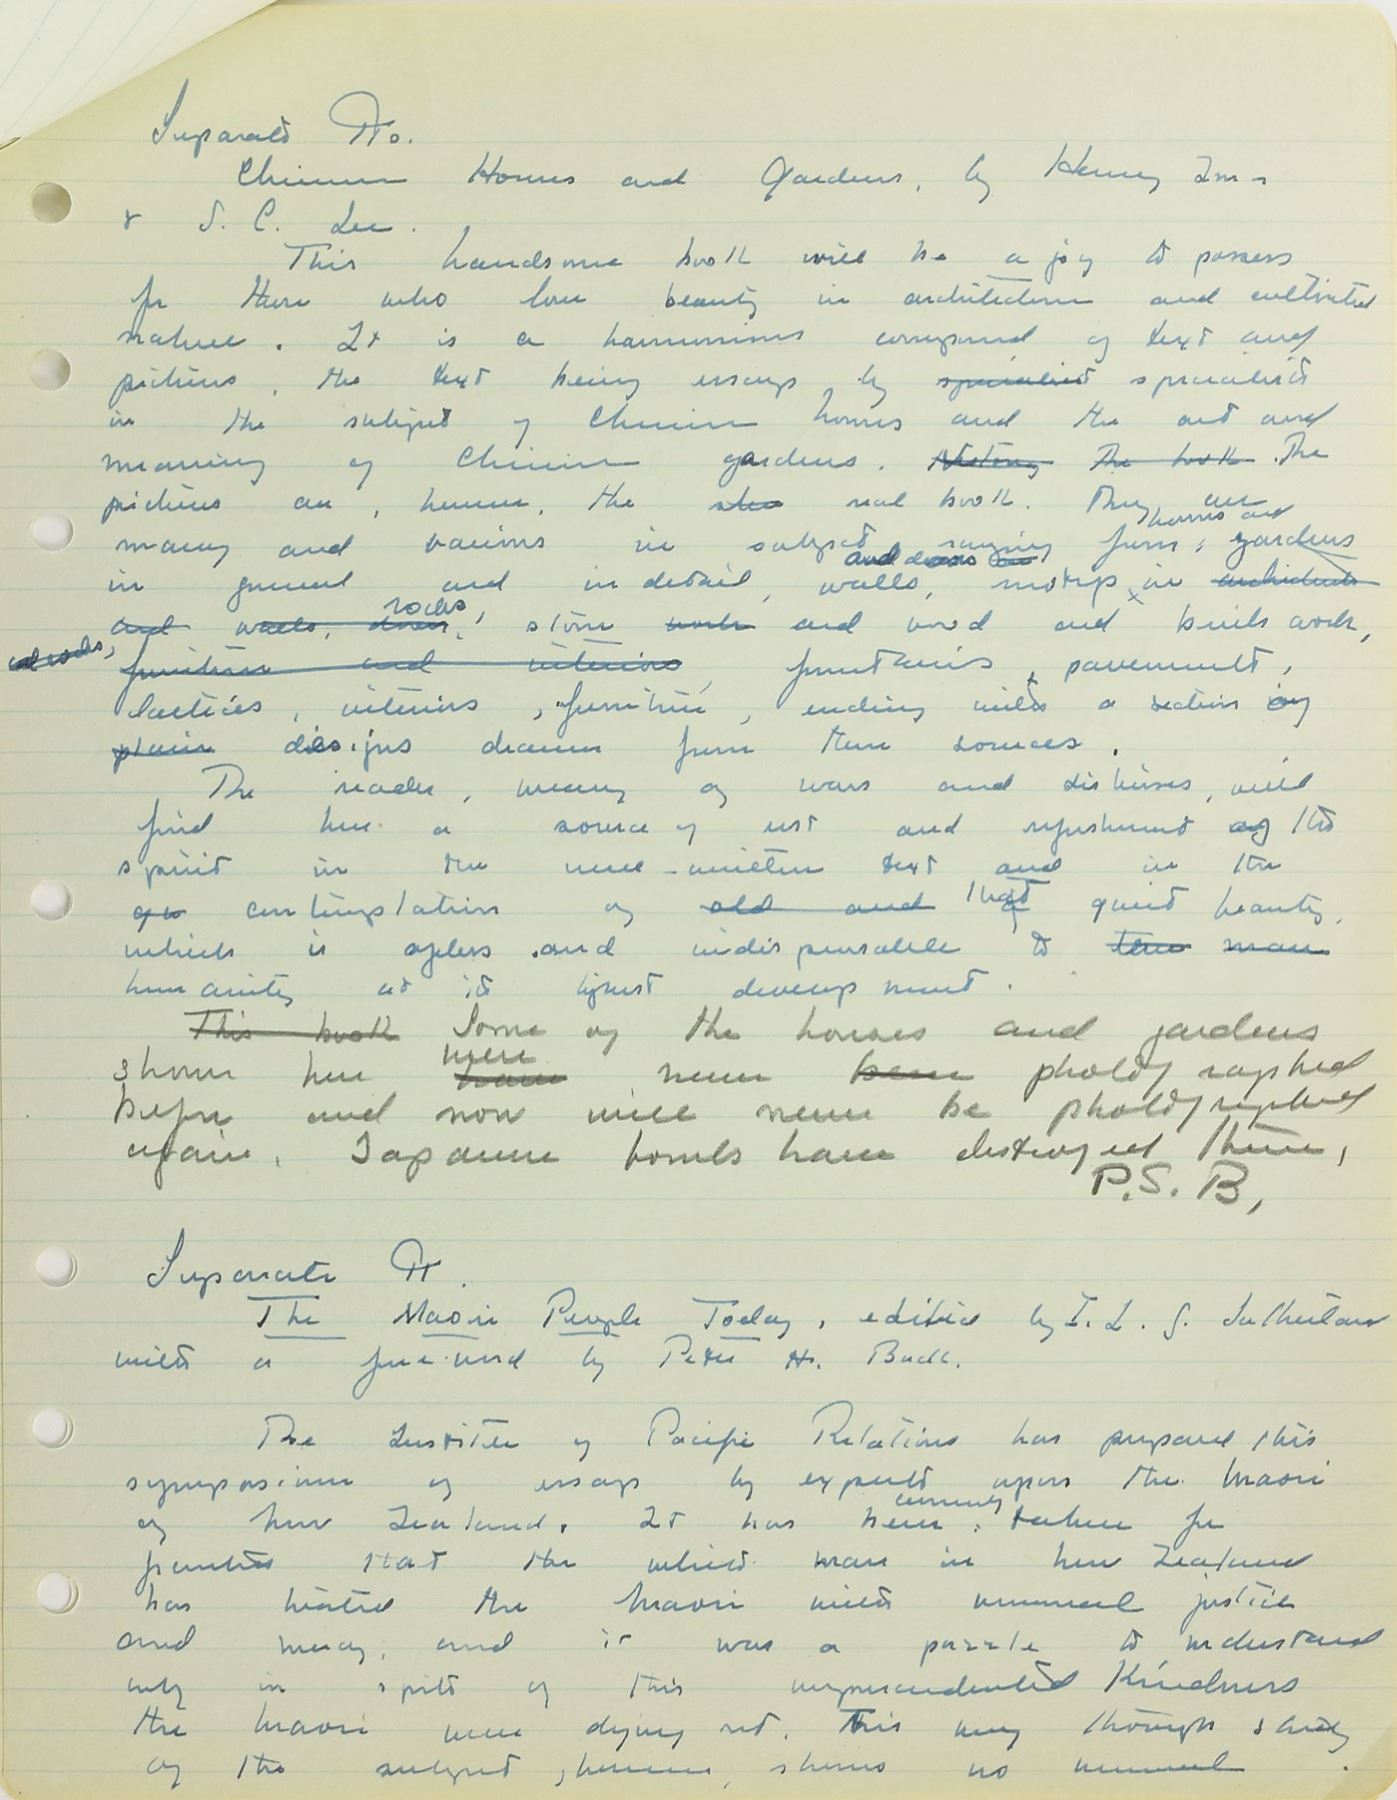 Separate #.
Chinese Houses and Gardens, by Henry Inn -
& S. C. Lee.
This handsome book will be a joy to possess
for those who love beauty in architecture and cultivated
nature. It is a harmonious compound of text and
pictures, the text being essays by specialists specialists
in the subject of Chinese homes and the art and
meaning of Chinese gardens. History The book The
pictures are, however, the real book. They are
many and various in subject ranging from homes and gardens
in general and in detail, walls, and doors motifs in architecture
and walls, doors, rocks, stone work and wood and brick work,
and rocks, furniture and interiors, fountains, pavements,
lattices, interiors, furniture, ending with a section of
plain designs drawn from these sources.
The reader, weary of wars and distress, will
find here a source of rest and refreshment of the
spirit in the well-written text and in the
contemplation of old and that quiet beauty,
which is ageless and indispensable to man
humanity at its highest development.
This book Some of the houses and gardens
shown here were have never been photographed
before and now will never be photographed
again. Japanese bombs have destroyed them.
P.S.B.
Separate #.
The Maori People Today, edited by I. L. G. Sutherland
with a foreword by Peter H. Buck.
The Institute of Pacific Relations has prepared this
symposium of essays by experts upon the Maori
of New Zealand. It has been commonly taken for
granted that the white man in New Zealand
has treated the Maori with unusual justice
and mercy, and it was a puzzle to understand
why in spite of this unprecedented kindness
the Maori were dying out. This very thorough study
of the subject, however, shows no unusual